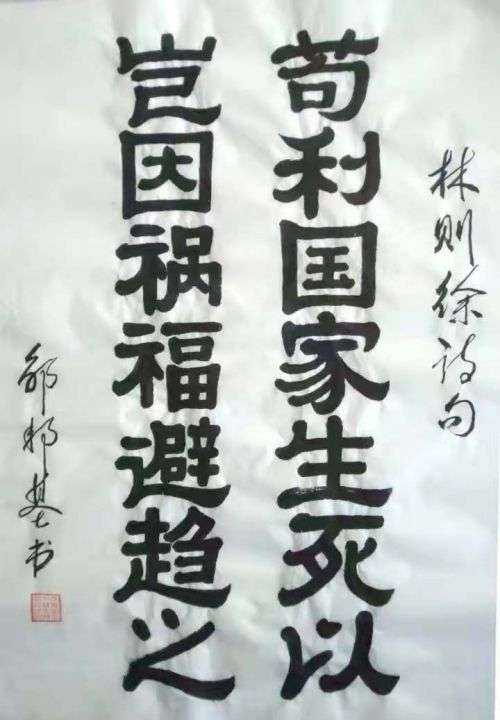 林则徐诗句
苟利国家生死以
岂因祸福避趋之
邵邦基书